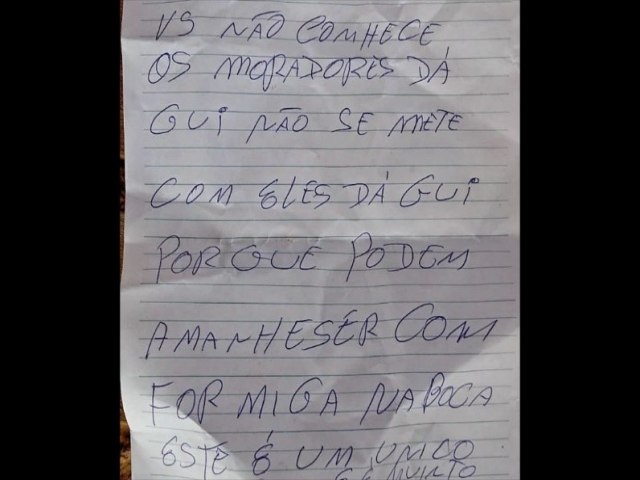 VS NÃO COMHECE
OS MORADORES DÁ
GUI NÃO SE METE
COM ELES DÁ GUI
PORQUE PODEM
AMANHESÉR COM
FORMIGA NA BOCA
ESTE É UM UNICO
E É MUINTO